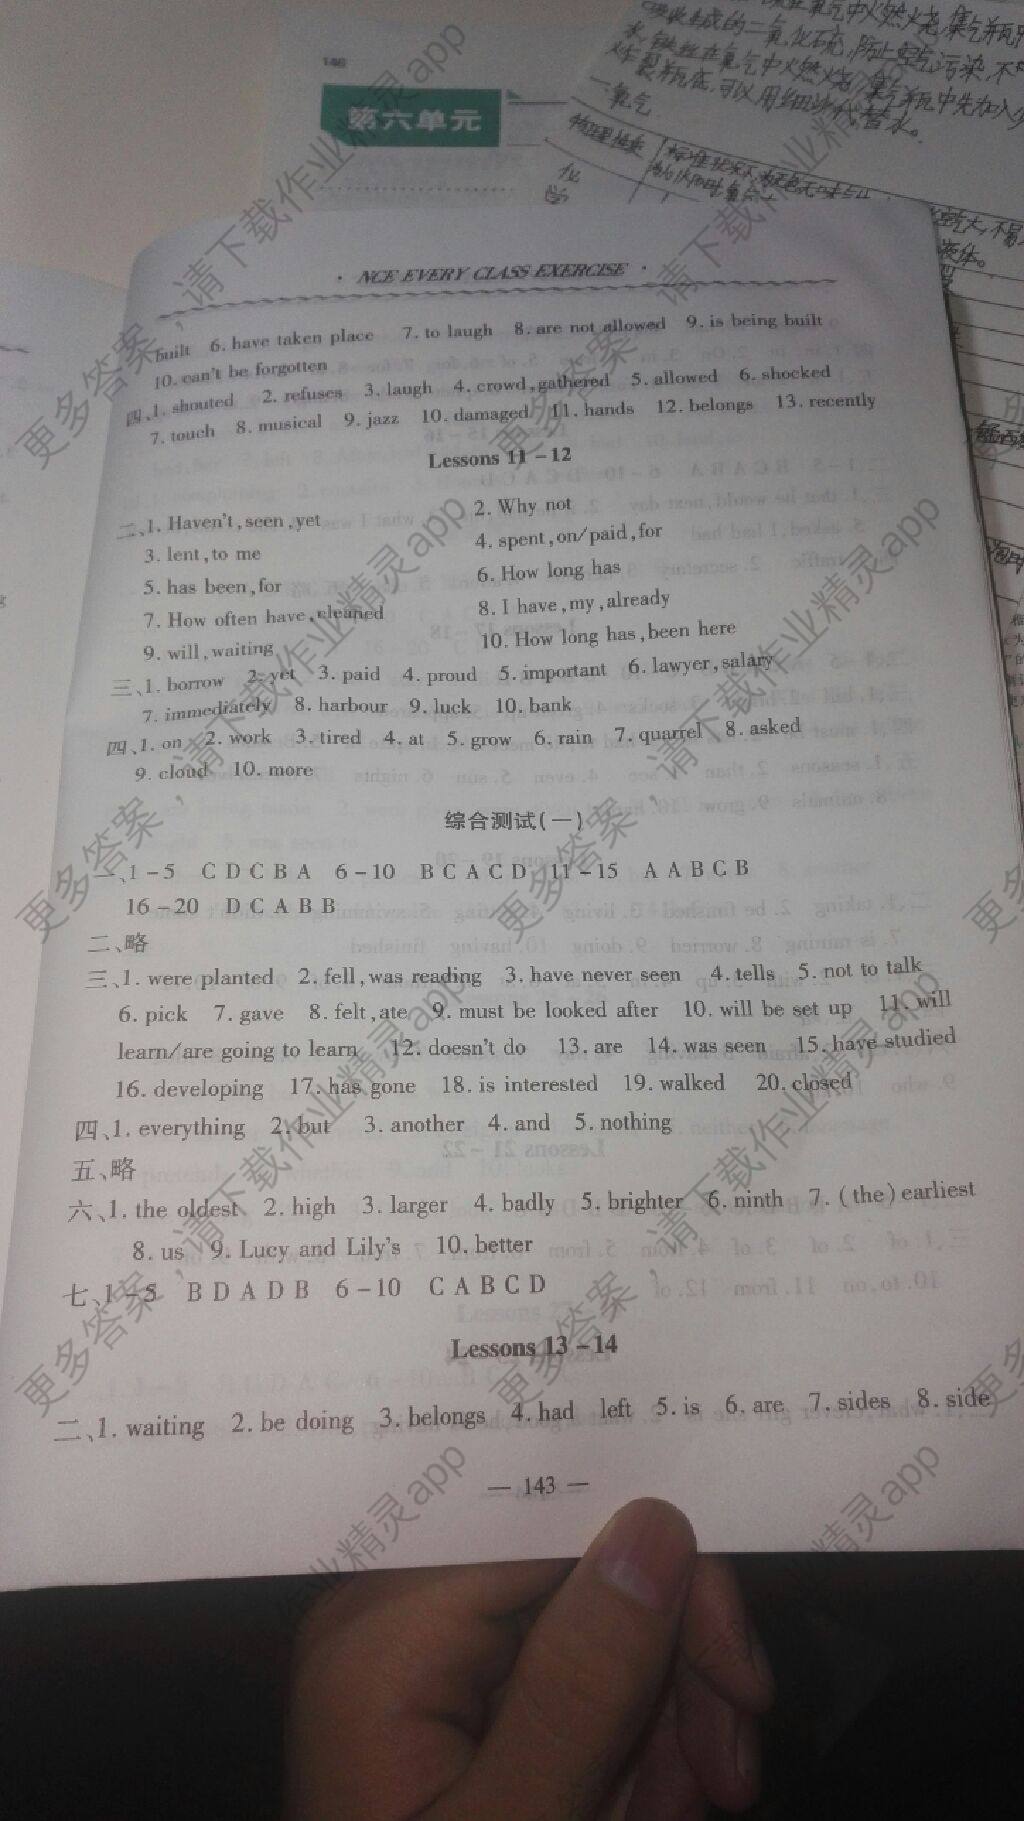 146
第六单元
· NCE EVERY CLASS EXERCISE ·
built 6. have taken place 7. to laugh 8. are not allowed 9. is being built
10. can't be forgotten
四、1. shouted 2. refuses 3. laugh 4. crowd, gathered 5. allowed 6. shocked
7. touch 8. musical 9. jazz 10. damaged 11. hands 12. belongs 13. recently
Lessons 11－12
二、1. Haven't, seen, yet 2. Why not
3. lent, to me 4. spent, on/paid, for
5. has been, for 6. How long has
7. How often have, cleaned 8. I have, my, already
9. will, waiting 10. How long has, been here
三、1. borrow 2. yet 3. paid 4. proud 5. important 6. lawyer, salary
7. immediately 8. harbour 9. luck 10. bank
四、1. on 2. work 3. tired 4. at 5. grow 6. rain 7. quarrel 8. asked
9. cloud 10. more
综合测试(一)
一、1－5 C D C B A 6－10 B C A C D 11－15 A A B C B
16－20 D C A B B
二、略
三、1. were planted 2. fell, was reading 3. have never seen 4. tells 5. not to talk
6. pick 7. gave 8. felt, ate 9. must be looked after 10. will be set up 11. will
learn/are going to learn 12. doesn't do 13. are 14. was seen 15. have studied
16. developing 17. has gone 18. is interested 19. walked 20. closed
四、1. everything 2. but 3. another 4. and 5. nothing
五、略
六、1. the oldest 2. high 3. larger 4. badly 5. brighter 6. ninth 7. (the) earliest
8. us 9. Lucy and Lily's 10. better
七、1－5 B D A D B 6－10 C A B C D
Lessons 13－14
二、1. waiting 2. be doing 3. belongs 4. had left 5. is 6. are 7. sides 8. side
— 143 —
更多答案，请下载作业精灵app